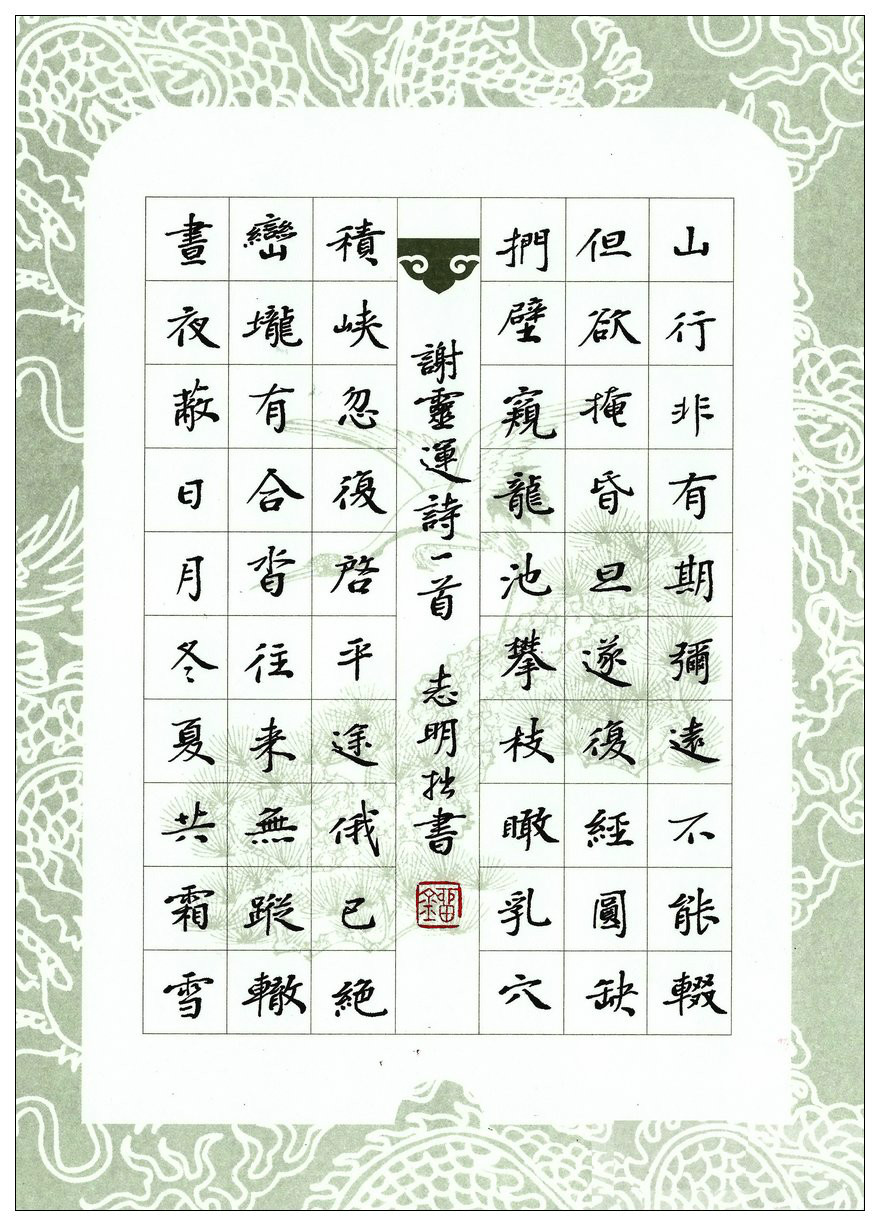 山行非有期彌遠不能輟
但欲掩昏旦遂復經圓缺
捫壁窺龍池攀枝瞰乳穴
積峽忽復啓平途俄已絕
巒壠有合沓往来無蹤轍
晝夜蔽日月冬夏共霜雪
謝靈運詩一首 志明拙書